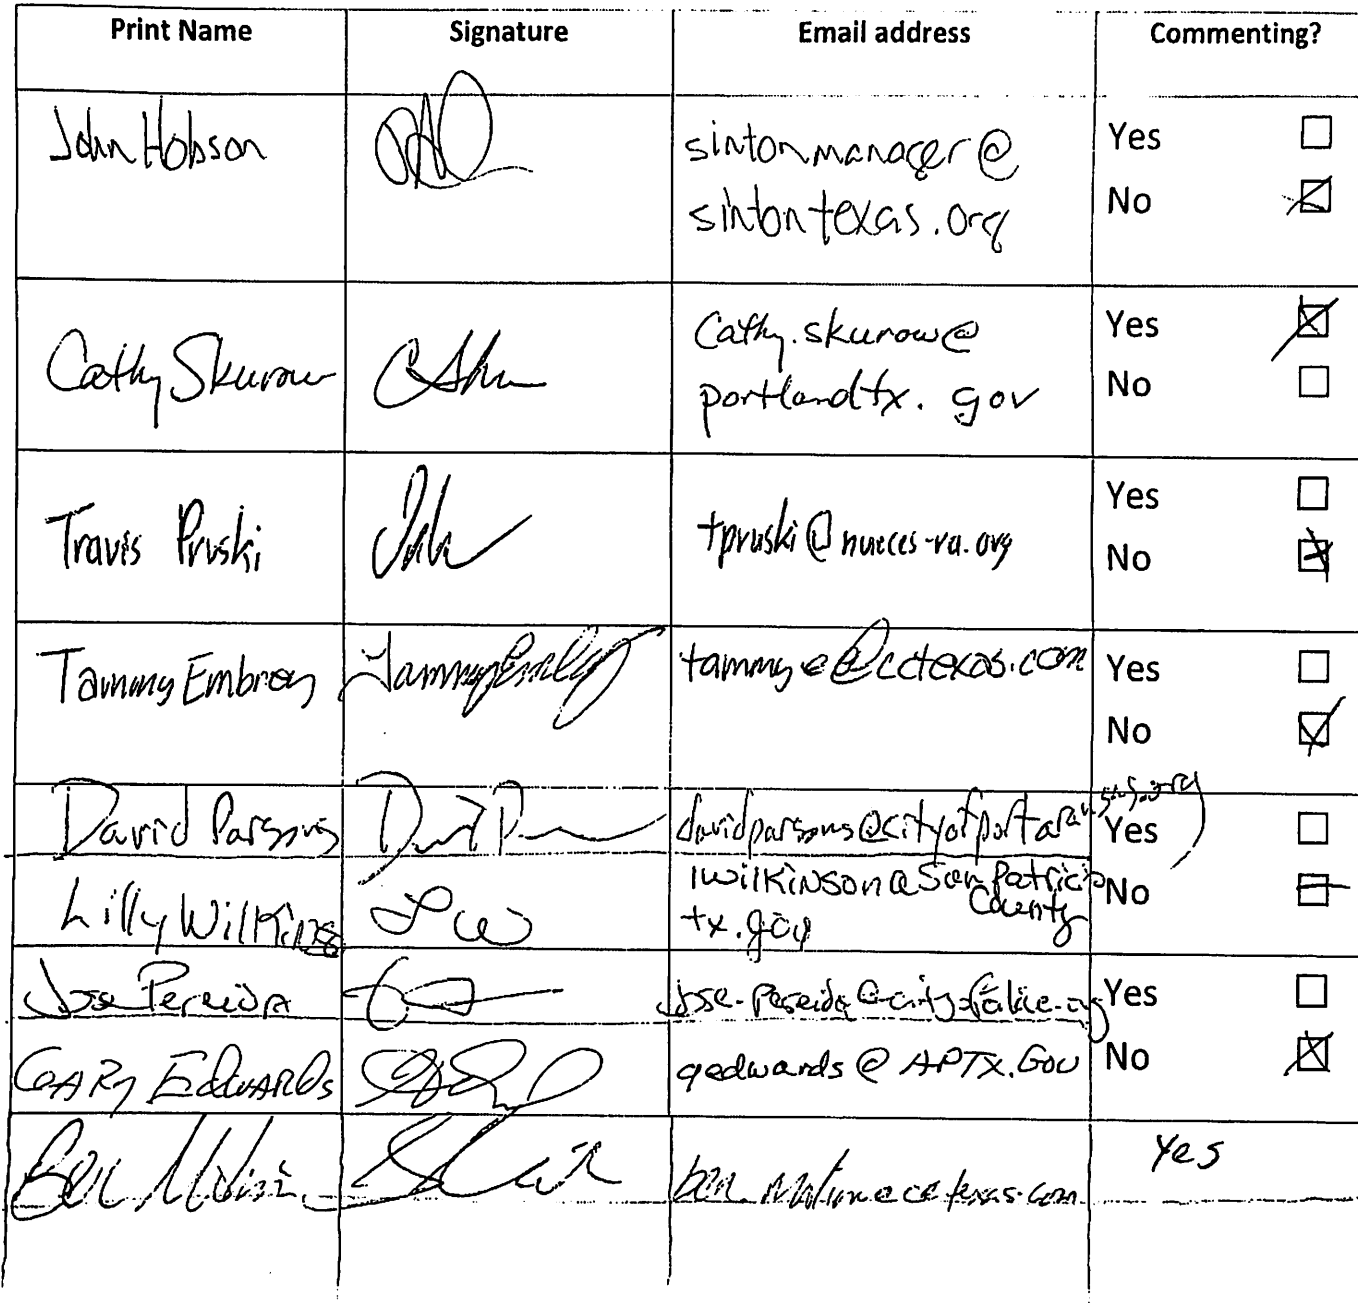 Print Name Signature Email address Commenting?
John Hobson sintonmanager@ Yes
sintontexas.org No
Cathy.skurow@ Yes
Cathy Skurow portlandtx.gov No
Yes
Travis Pruski tpruski@nueces-ra.org No
Tammy Embrey tammye@cctexas.com Yes
No
David Parsons davidparsons@cityofportaransas.org Yes
Lilly Wilkins LW lwilkinson@SanPatricio No
County
tx.gov
Jose Yes
GARY EDWARDS gedwards@APTX.Gov No
Ben yes